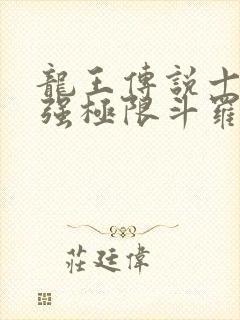 龍王傳説十
强極限斗羅
莊廷偉